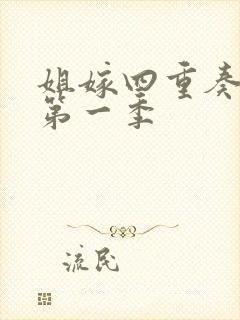 姐嫁四重奏
第一季
流民